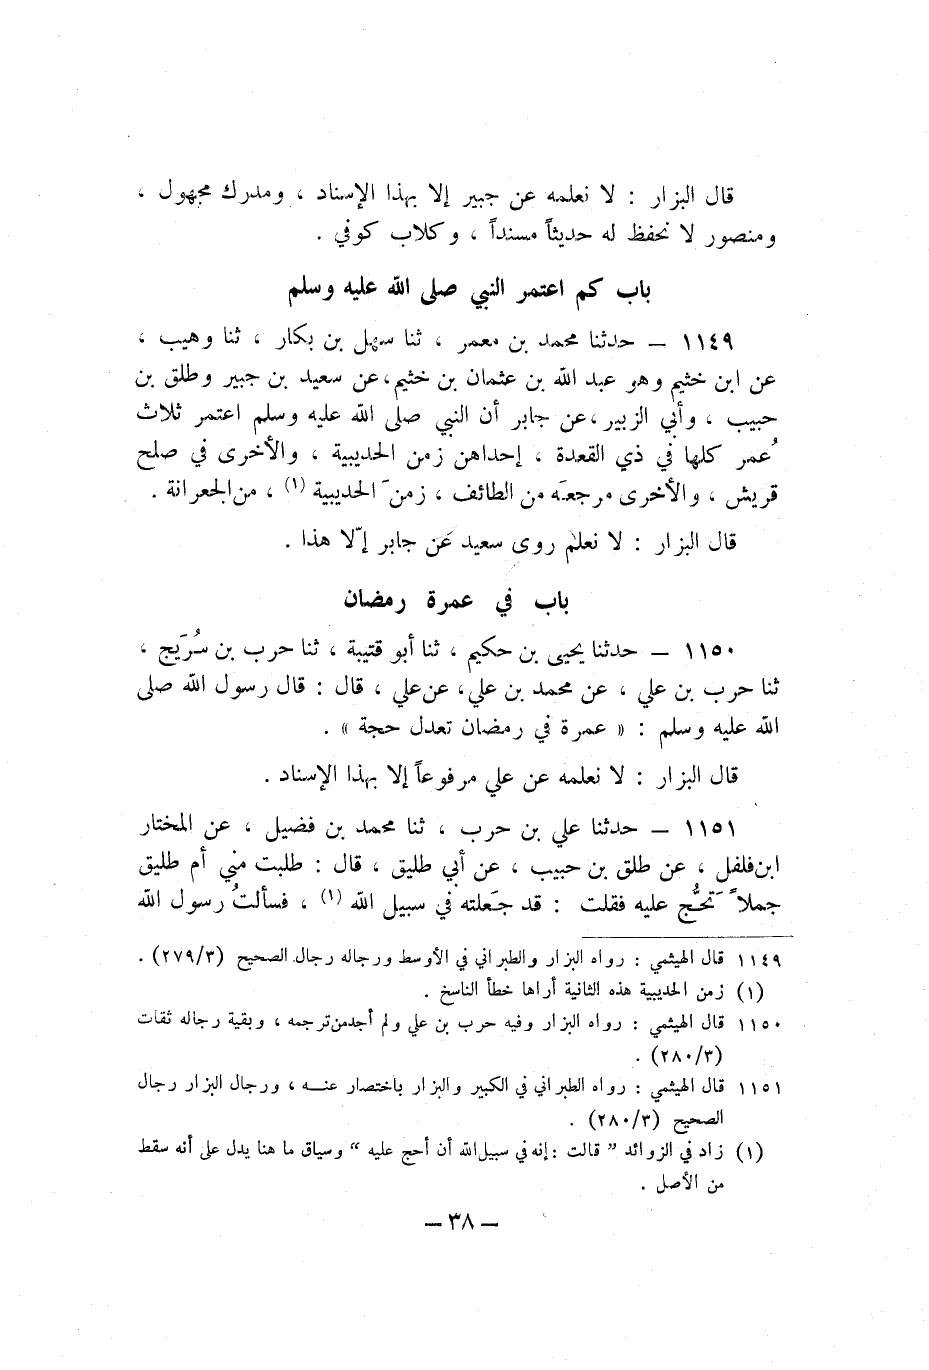 قال البزار : لا نعلمه عن جبير إلا بهذا الإسناد ، ومدرك مجهول ،
ومنصور لا نحفظ له حديثاً مسنداً ، وكلاب كوفي .
باب كم اعتمر النبي صلى الله عليه وسلم
١١٤٩ – حدثنا محمد بن معمر ، ثنا سهل بن بكار ، ثنا وهيب ،
عن ابن خثيم وهو عبد الله بن عثمان بن خثيم، عن سعيد بن جبير وطلق بن
حبيب ، وأبي الزبير ، عن جابر أن النبي صلى الله عليه وسلم اعتمر ثلاث
عُمر كلها في ذي القعدة ، إحداهن زمن الحديبية ، والأخرى في صلح
قريش ، والأخرى مرجعَه من الطائف ، زمنَ الحديبية (١) ، من الجعرانة .
قال البزار : لا نعلم روى سعيد عن جابر إلّا هذا .
باب في عمرة رمضان
١١٥٠ – حدثنا يحيى بن حكيم ، ثنا أبو قتيبة ، ثنا حرب بن سُرَيج ،
ثنا حرب بن علي ، عن محمد بن علي، عن علي ، قال : قال رسول الله صلى
الله عليه وسلم : « عمرة في رمضان تعدل حجة » .
قال البزار : لا نعلمه عن علي مرفوعاً إلا بهذا الإسناد .
١١٥١ – حدثنا علي بن حرب ، ثنا محمد بن فضيل ، عن المختار
ابن فلفل ، عن طلق بن حبيب ، عن أبي طليق ، قال : طلبت مني أم طليق
جملاً تَحُجُّ عليه فقلت : قد جَعلته في سبيل الله (١) ، فسألتُ رسول الله
١١٤٩ قال الهيثمي : رواه البزار والطبراني في الأوسط ورجاله رجال الصحيح (٢٧٩/٣) .
(١) زمن الحديبية هذه الثانية أراها خطأ الناسخ .
١١٥٠ قال الهيثمي : رواه البزار وفيه حرب بن علي ولم أجد من ترجمه ، وبقية رجاله ثقات
(٢٨٠/٣) .
١١٥١ قال الهيثمي : رواه الطبراني في الكبير والبزار باختصار عنـــه ، ورجال البزار رجال
الصحيح (٢٨٠/٣) .
(١) زاد في الزوائد " قالت : إنه في سبيل الله أن أحج عليه " وسياق ما هنا يدل على أنه سقط
من الأصل .
– ٣٨ –